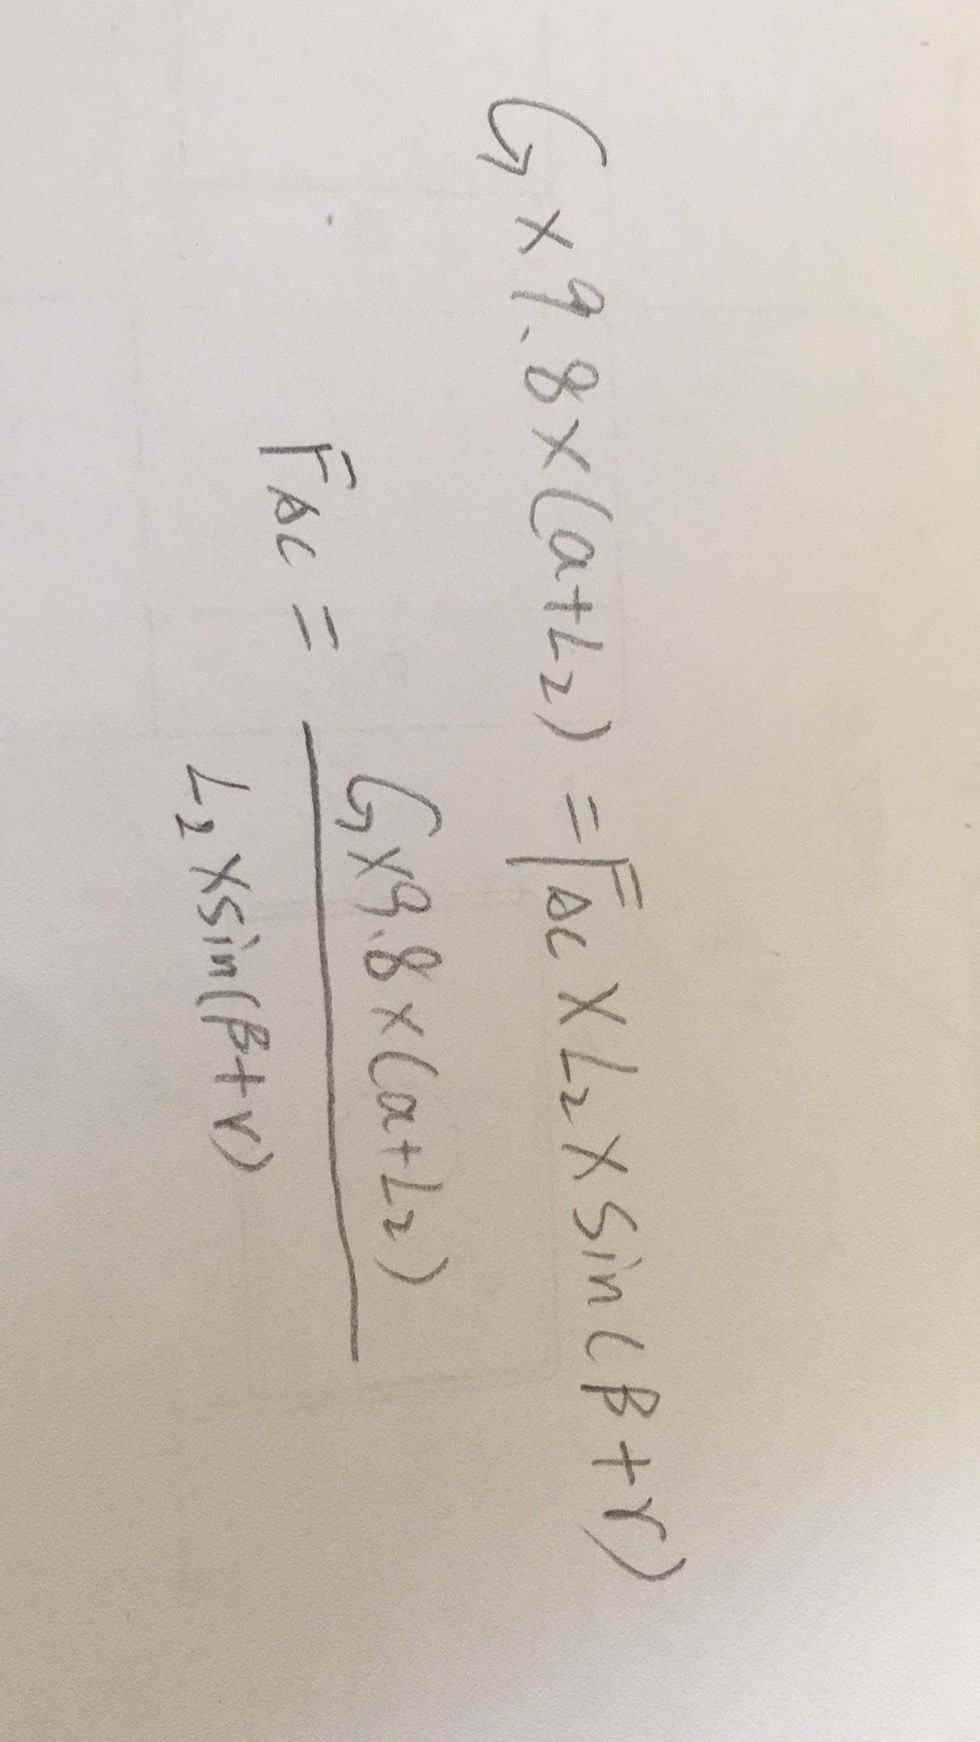 G×9.8×(a+L₂)=F_{AC}×L₂×sin(β+γ)
F_{AC}=
G×9.8×(a+L₂)
L₂×sin(β+γ)